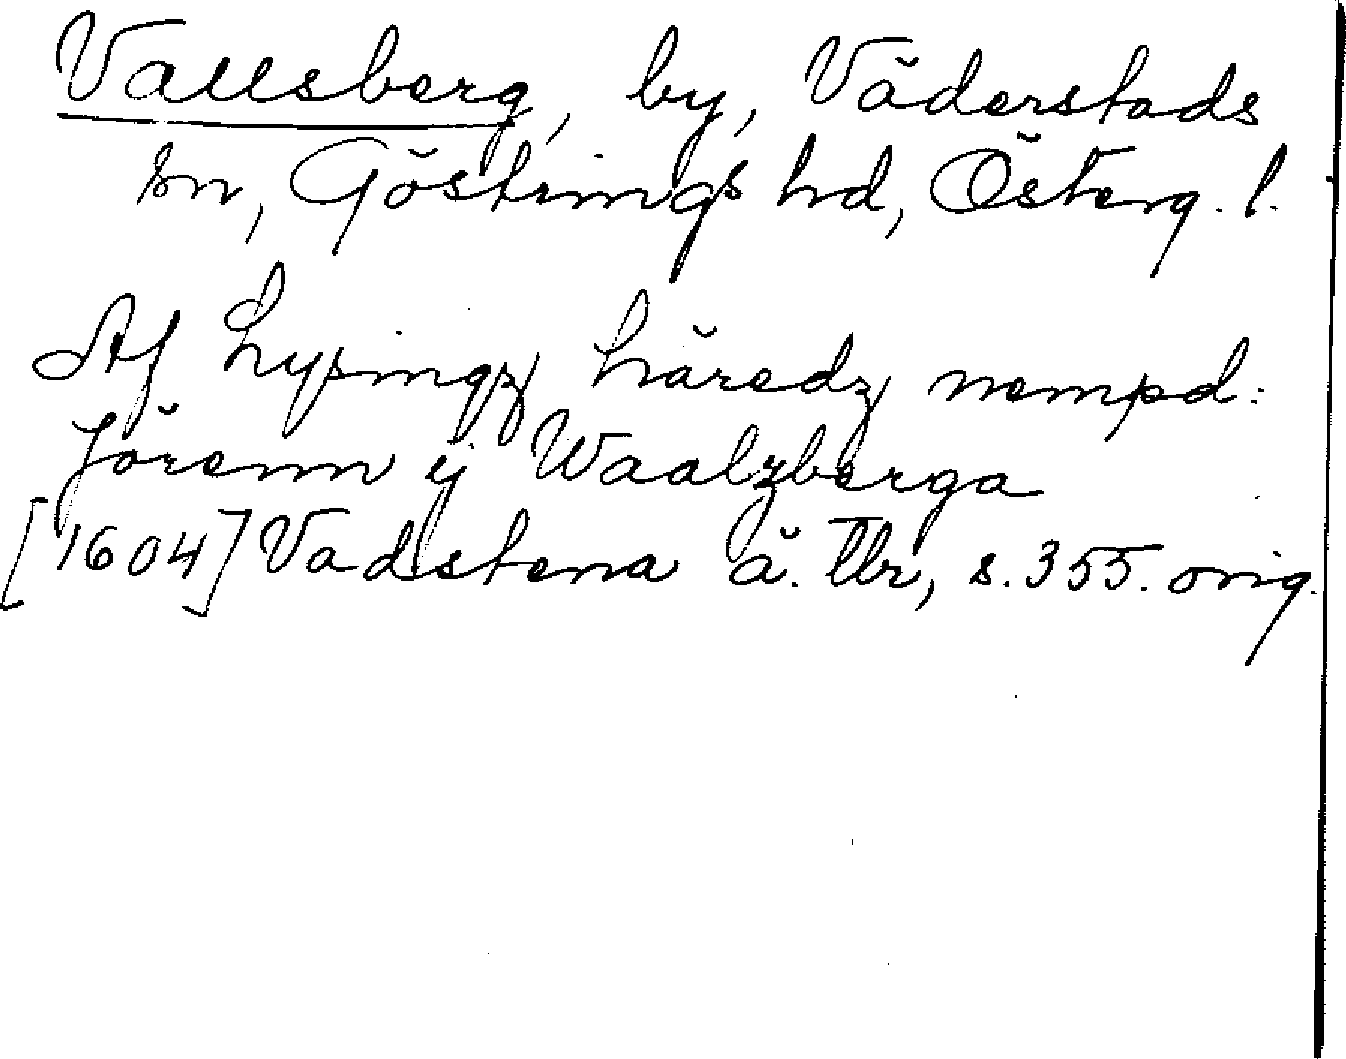 Vallsberg, by, Väderstads
sn, Göstrings hd, Österg. l.
Af Lysingz häredz nempd:
Jörenn ij Waalzberga
[1604] Vadstena ä. tbr, s. 355. orig.